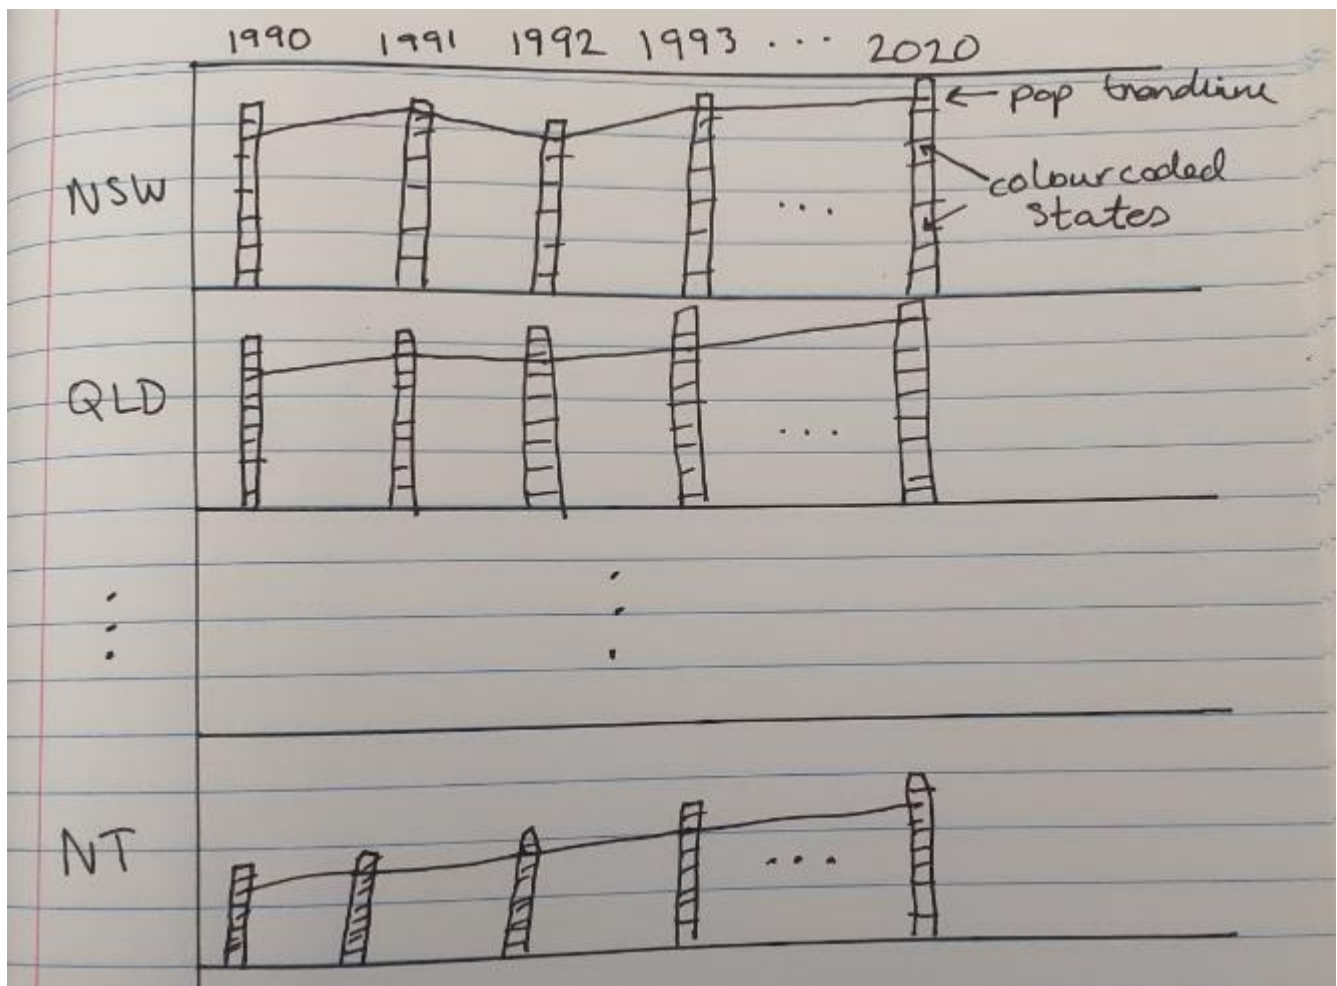 1990 1991 1992 1993 ... 2020
← pop trendline
NSW
colourcoded
states
...
QLD
...
NT
...